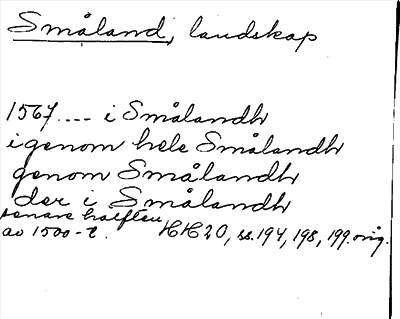 Småland, landskap
1567.... i Smålandh
igenom hele Smålandh
genom Smålandh
der i Smålandh
senare hälften
av 1500-t. HH 20, ss. 194, 198, 199. orig.